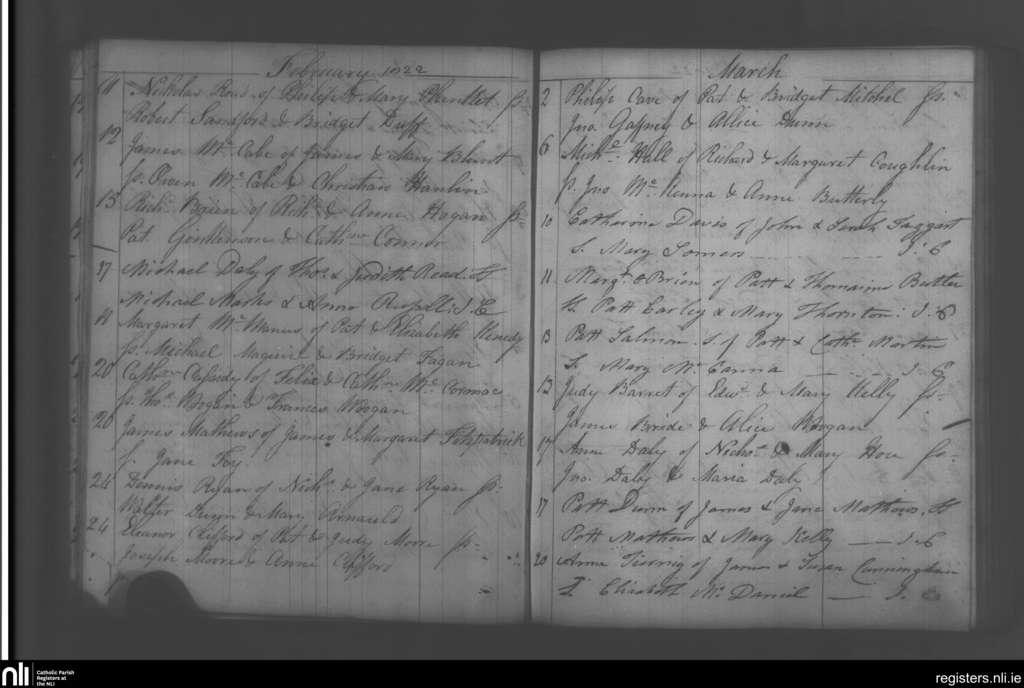 February 1822
11 Nicholas of Philip & Mary Plunket ss.
Robert Sandford & Bridget Duff
12 James Mc. Cabe of James & Mary
ss. Owen Mc. Cabe & Christian Hanlon
15 Richd. Brien of Rich. & Anne Hogan ss.
Pat. & Cath. Connor
17 Michael Daly of Thos. & Judith Read. SS
Michael Marks & Anne Russell: J. C
Margaret Mc. Manus of Pat & Elizabeth
ss. Michael Maguire & Bridget Fagan
20 Cathn. Cassidy of Felix & Cathn. Mc. Cormac
ss. Thos. Wogan & Frances Wogan
20 James Mathews of James & Margaret Fitzpatrick
s. Jane Foy
24 Dennis Ryan of Nichs. & Jane Ryan ss.
Walter & Mary
24 Eleanor Clifford of Pat & Judy Moore ss.
Joseph Moore & Anne Clifford
March
2 Philip Cave of Pat & Bridget Mitchel ss.
Jno. Gaffney & Allice Dunn
6 Hall of Richard & Margaret Coughlin
ss. Jno Mc. Kenna & Anne Butterly
10 Catharine Davis of John & Sarah Taggart
S. Mary Somers J. C
11 Margt. OBrien of Patt & Thomasine Butler
SS Patt Earley & Mary Thornton: J. C
13 Patt Salmon. S. of Patt & Cathn. Martin
S. Mary Mc Canna J. C
13 Judy Barret of Edwd. & Mary Kelly ss.
James Bride & Alice Wogan
17 Anne Daly of Nichs. & Mary Hoe ss.
Jno. Daly & Maria Daly
17 Patt Dunn of James & Jane Mathews. SS
Patt Mathews & Mary Kelly J C
20 Anne Tierney of James & Susan Cunningham
S Elizabeth Mc. Daniel J.
nli
Catholic Parish
Registers at
the NLI
registers.nli.ie